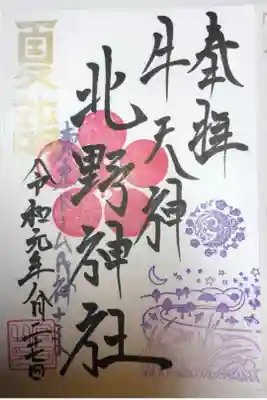 奉拝
牛天神
北野神社
令和元年八月二十七日
夏詣